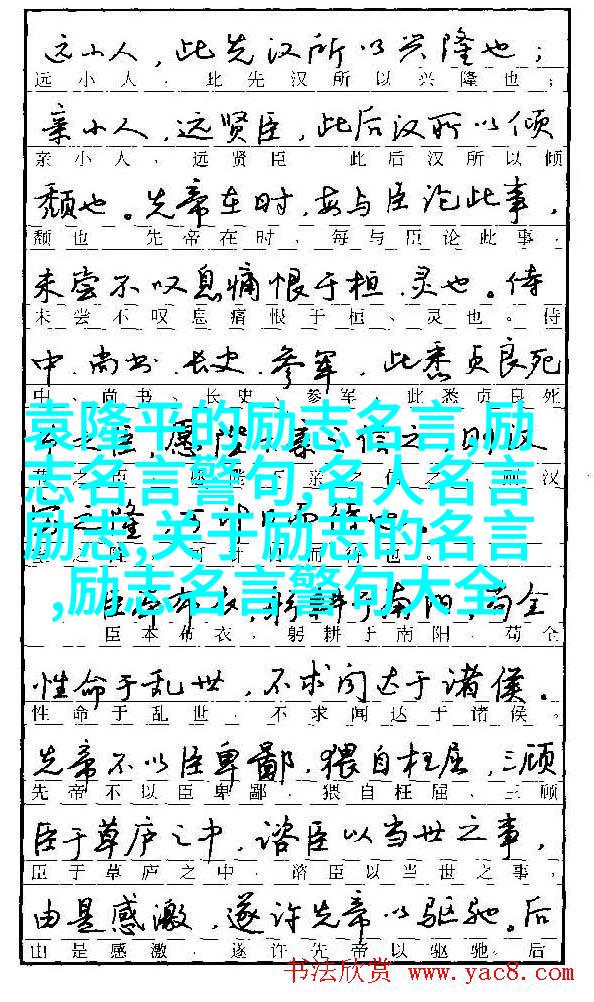 远小人，此先汉所以兴隆也；
远小人，此先汉所以兴隆也；
亲小人，远贤臣，此后汉所以倾
亲小人，远贤臣 此后汉所以倾
颓也。先帝在时，每与臣论此事，
颓也 先帝在时，每与臣论此事，
未尝不叹息痛恨于桓、灵也。侍
未尝不叹息痛恨于桓、灵也。侍
中、尚书、长史、参军，此悉贞良死
中、尚书、长史、参军 此悉贞良死
袁隆平的励志名言,励
志名言警句,名人名言
励志,关于励志的名言
,励志名言警句大全
臣本布衣，躬耕于南阳，苟全
臣本布衣，躬耕于南阳，苟全
性命于乱世，不求闻达于诸侯。
性命于乱世，不求闻达于诸侯。
先帝不以臣卑鄙，猥自枉屈，三顾
先帝不以臣卑鄙，猥自枉屈、三顾
臣于草庐之中，谘臣以当世之事，
臣于草庐之中，谘臣以当世之事，
由是感激，遂许先帝以驱驰。后
由是感激，遂许先帝以驱驰。后
书法欣赏 www.yac8.com